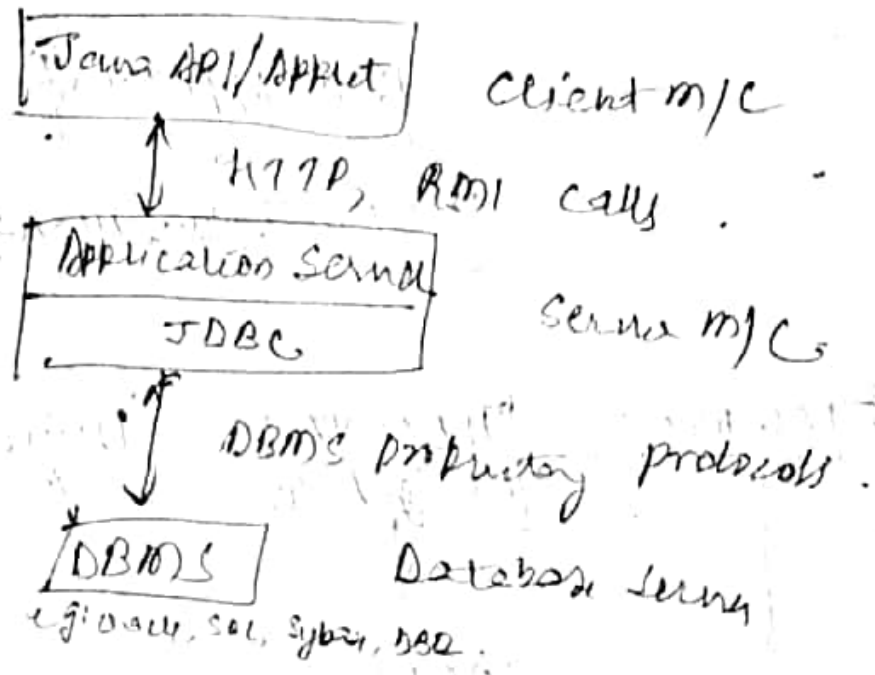 Java API/Applet
Client m/c
HTTP, RMI calls.
Application Server
JDBC
Server m/c
DBMS proprietary protocols.
DBMS
Database server
eg: Oracle, SQL, Sybase, DB2.